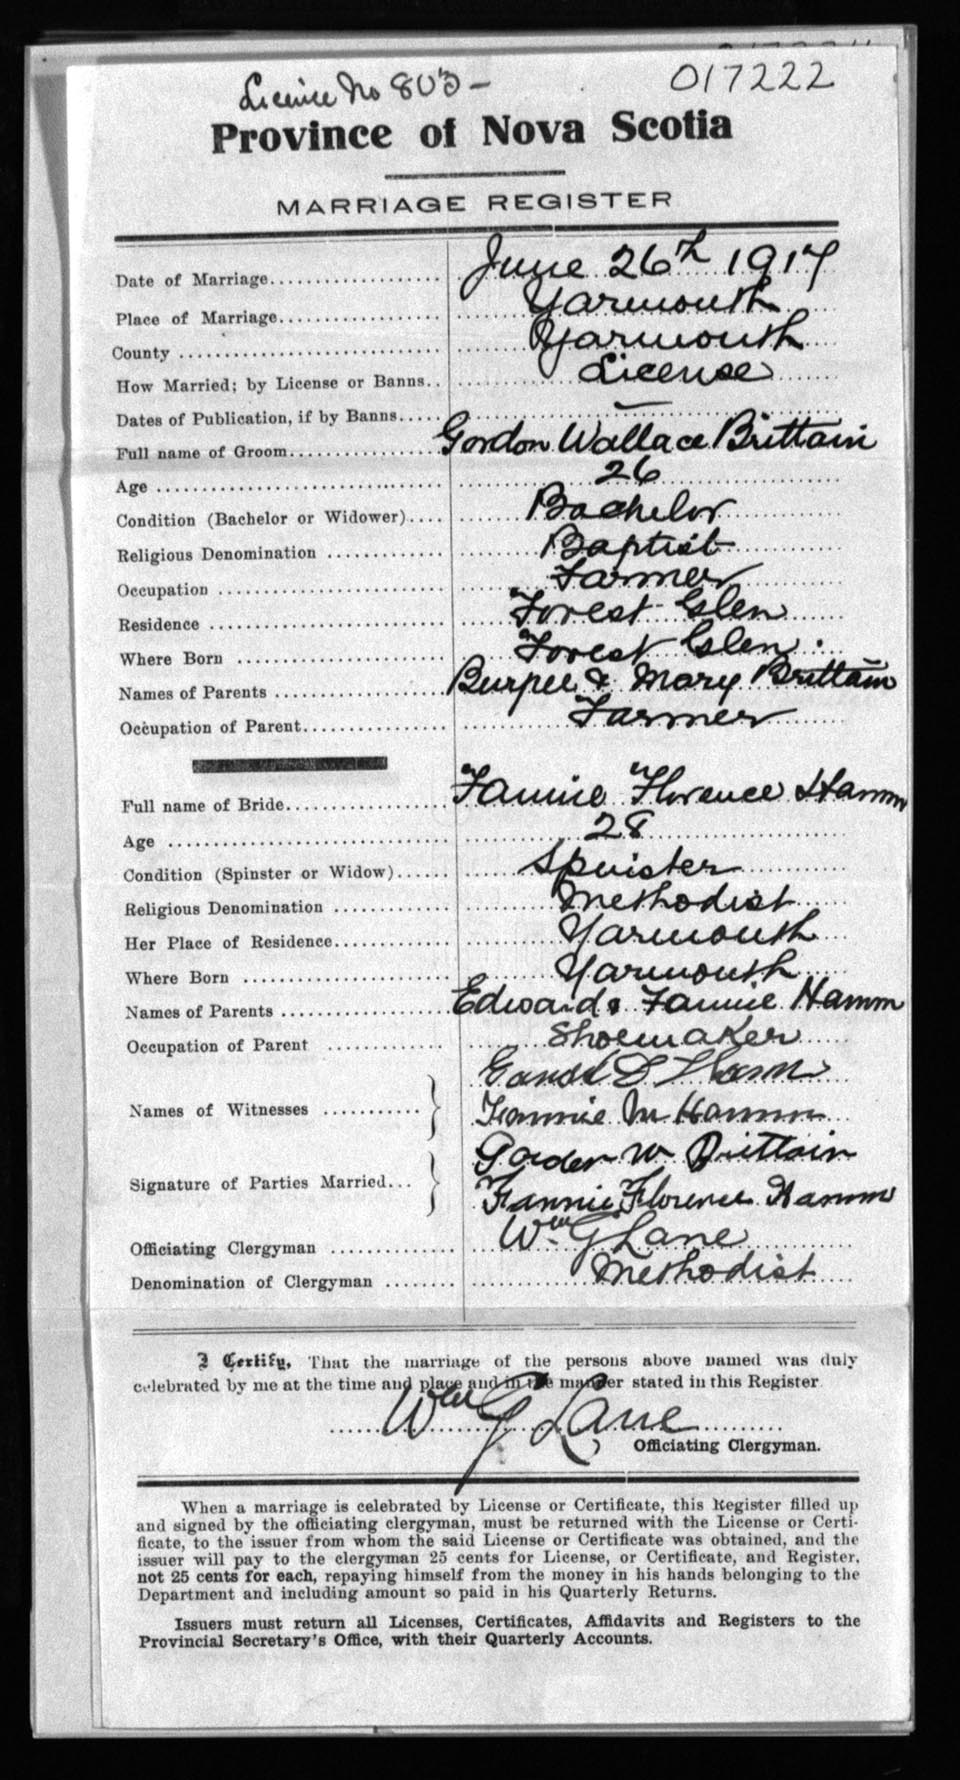 Licence No 803 -
017222
Province of Nova Scotia
MARRIAGE REGISTER
Date of Marriage.................... June 26th 1917
Place of Marriage................... Yarmouth
County .............................. Yarmouth
How Married; by License or Banns.. License
Dates of Publication, if by Banns..... —
Full name of Groom.................. Gordon Wallace Brittain
Age ................................. 26
Condition (Bachelor or Widower).... Bachelor
Religious Denomination ............. Baptist
Occupation .......................... Farmer
Residence ........................... Forest Glen
Where Born ......................... Forest Glen.
Names of Parents ................... Burpee & Mary Brittain
Occupation of Parent................ Farmer
Full name of Bride.................. Fannie Florence Hamm
Age ................................. 28
Condition (Spinster or Widow)...... Spinster
Religious Denomination ............. Methodist
Her Place of Residence.............. Yarmouth
Where Born ......................... Yarmouth
Names of Parents ................... Edward & Fannie Hamm
Occupation of Parent ............... Shoemaker
Hamm
Names of Witnesses ........... } Fannie M Hamm
Gorden W Brittain
Signature of Parties Married... } Fannie Florence Hamm
Officiating Clergyman ............... Wm. G Lane
Denomination of Clergyman ........ Methodist
I Certify, That the marriage of the persons above named was duly
celebrated by me at the time and place and in the manner stated in this Register
Wm G Lane
Officiating Clergyman.
When a marriage is celebrated by License or Certificate, this Register filled up
and signed by the officiating clergyman, must be returned with the License or Certi-
ficate, to the issuer from whom the said License or Certificate was obtained, and the
issuer will pay to the clergyman 25 cents for License, or Certificate, and Register,
not 25 cents for each, repaying himself from the money in his hands belonging to the
Department and including amount so paid in his Quarterly Returns.
Issuers must return all Licenses, Certificates, Affidavits and Registers to the
Provincial Secretary's Office, with their Quarterly Accounts.